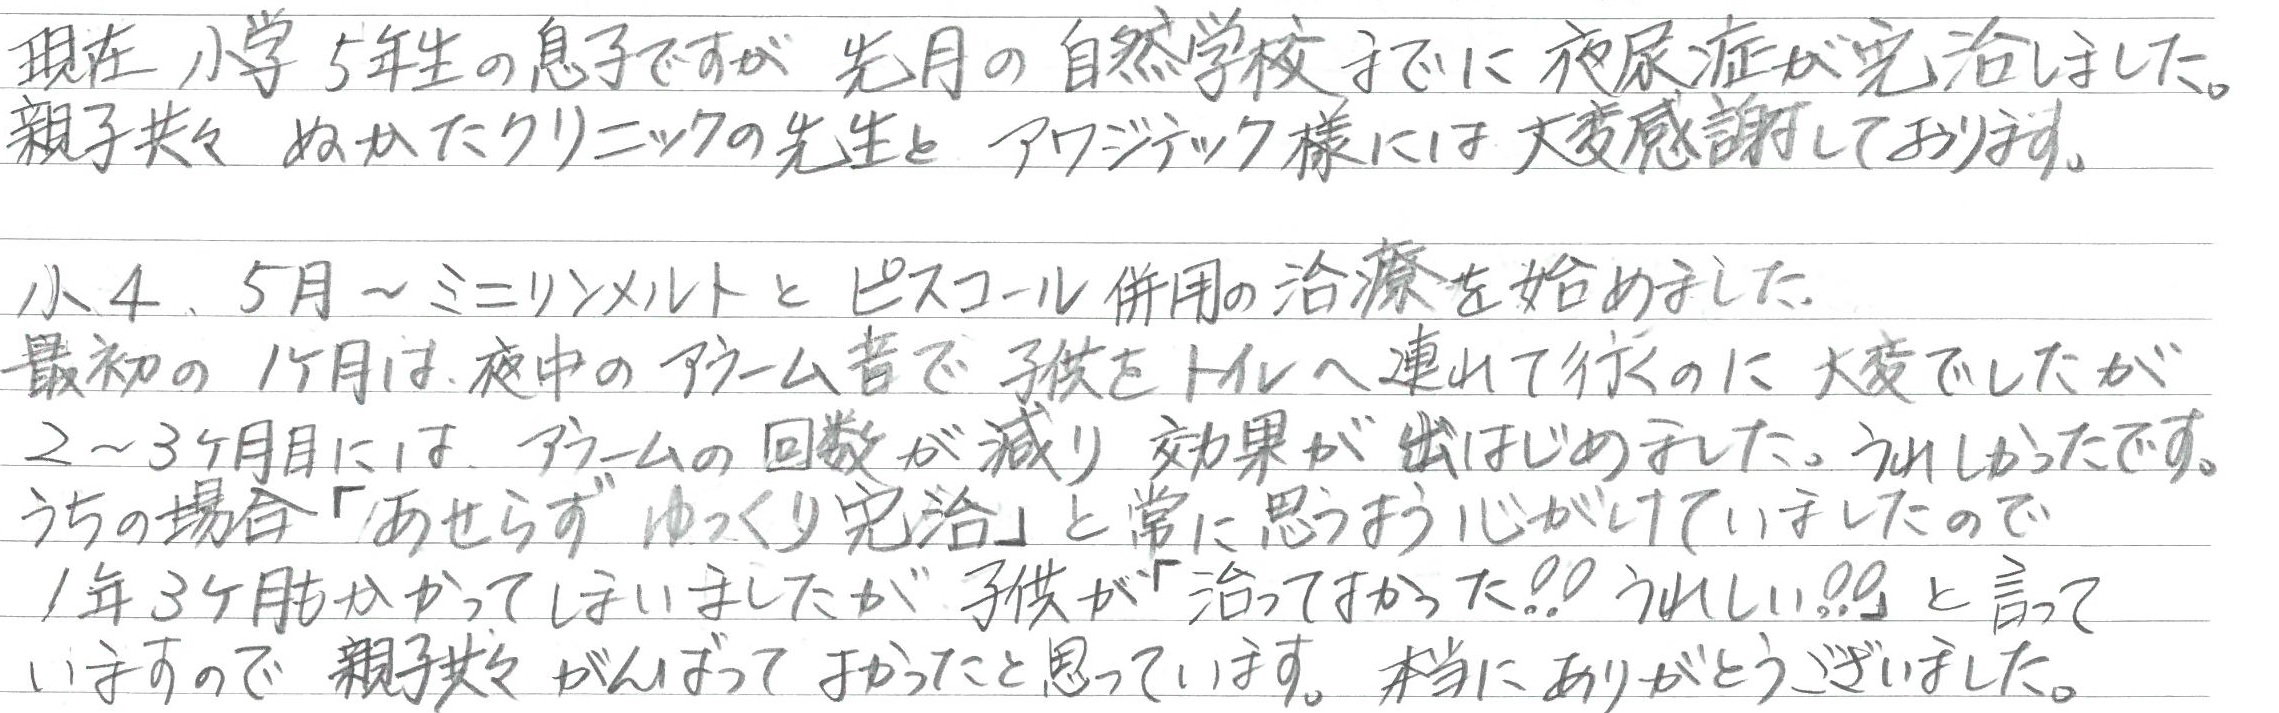 現在 小学5年生の息子ですが 先月の自然学校までに 夜尿症が完治しました。
親子共々 ぬかたクリニックの先生と アワジテック様には 大変感謝しております。
小4、5月～ミニリンメルトと ピスコール併用の治療を始めました。
最初の 1ケ月は、夜中の アラーム音で 子供をトイレへ連れて行くのに 大変でしたが
2～3ケ月目には、アラームの回数が減り 効果が出はじめました。うれしかったです。
うちの場合「あせらず ゆっくり完治」と常に思うよう心がけていましたので
1年3ケ月もかかってしまいましたが 子供が「治ってよかった!! うれしい!!」と言って
いますので 親子共々 がんばって よかったと思っています。本当に ありがとうございました。